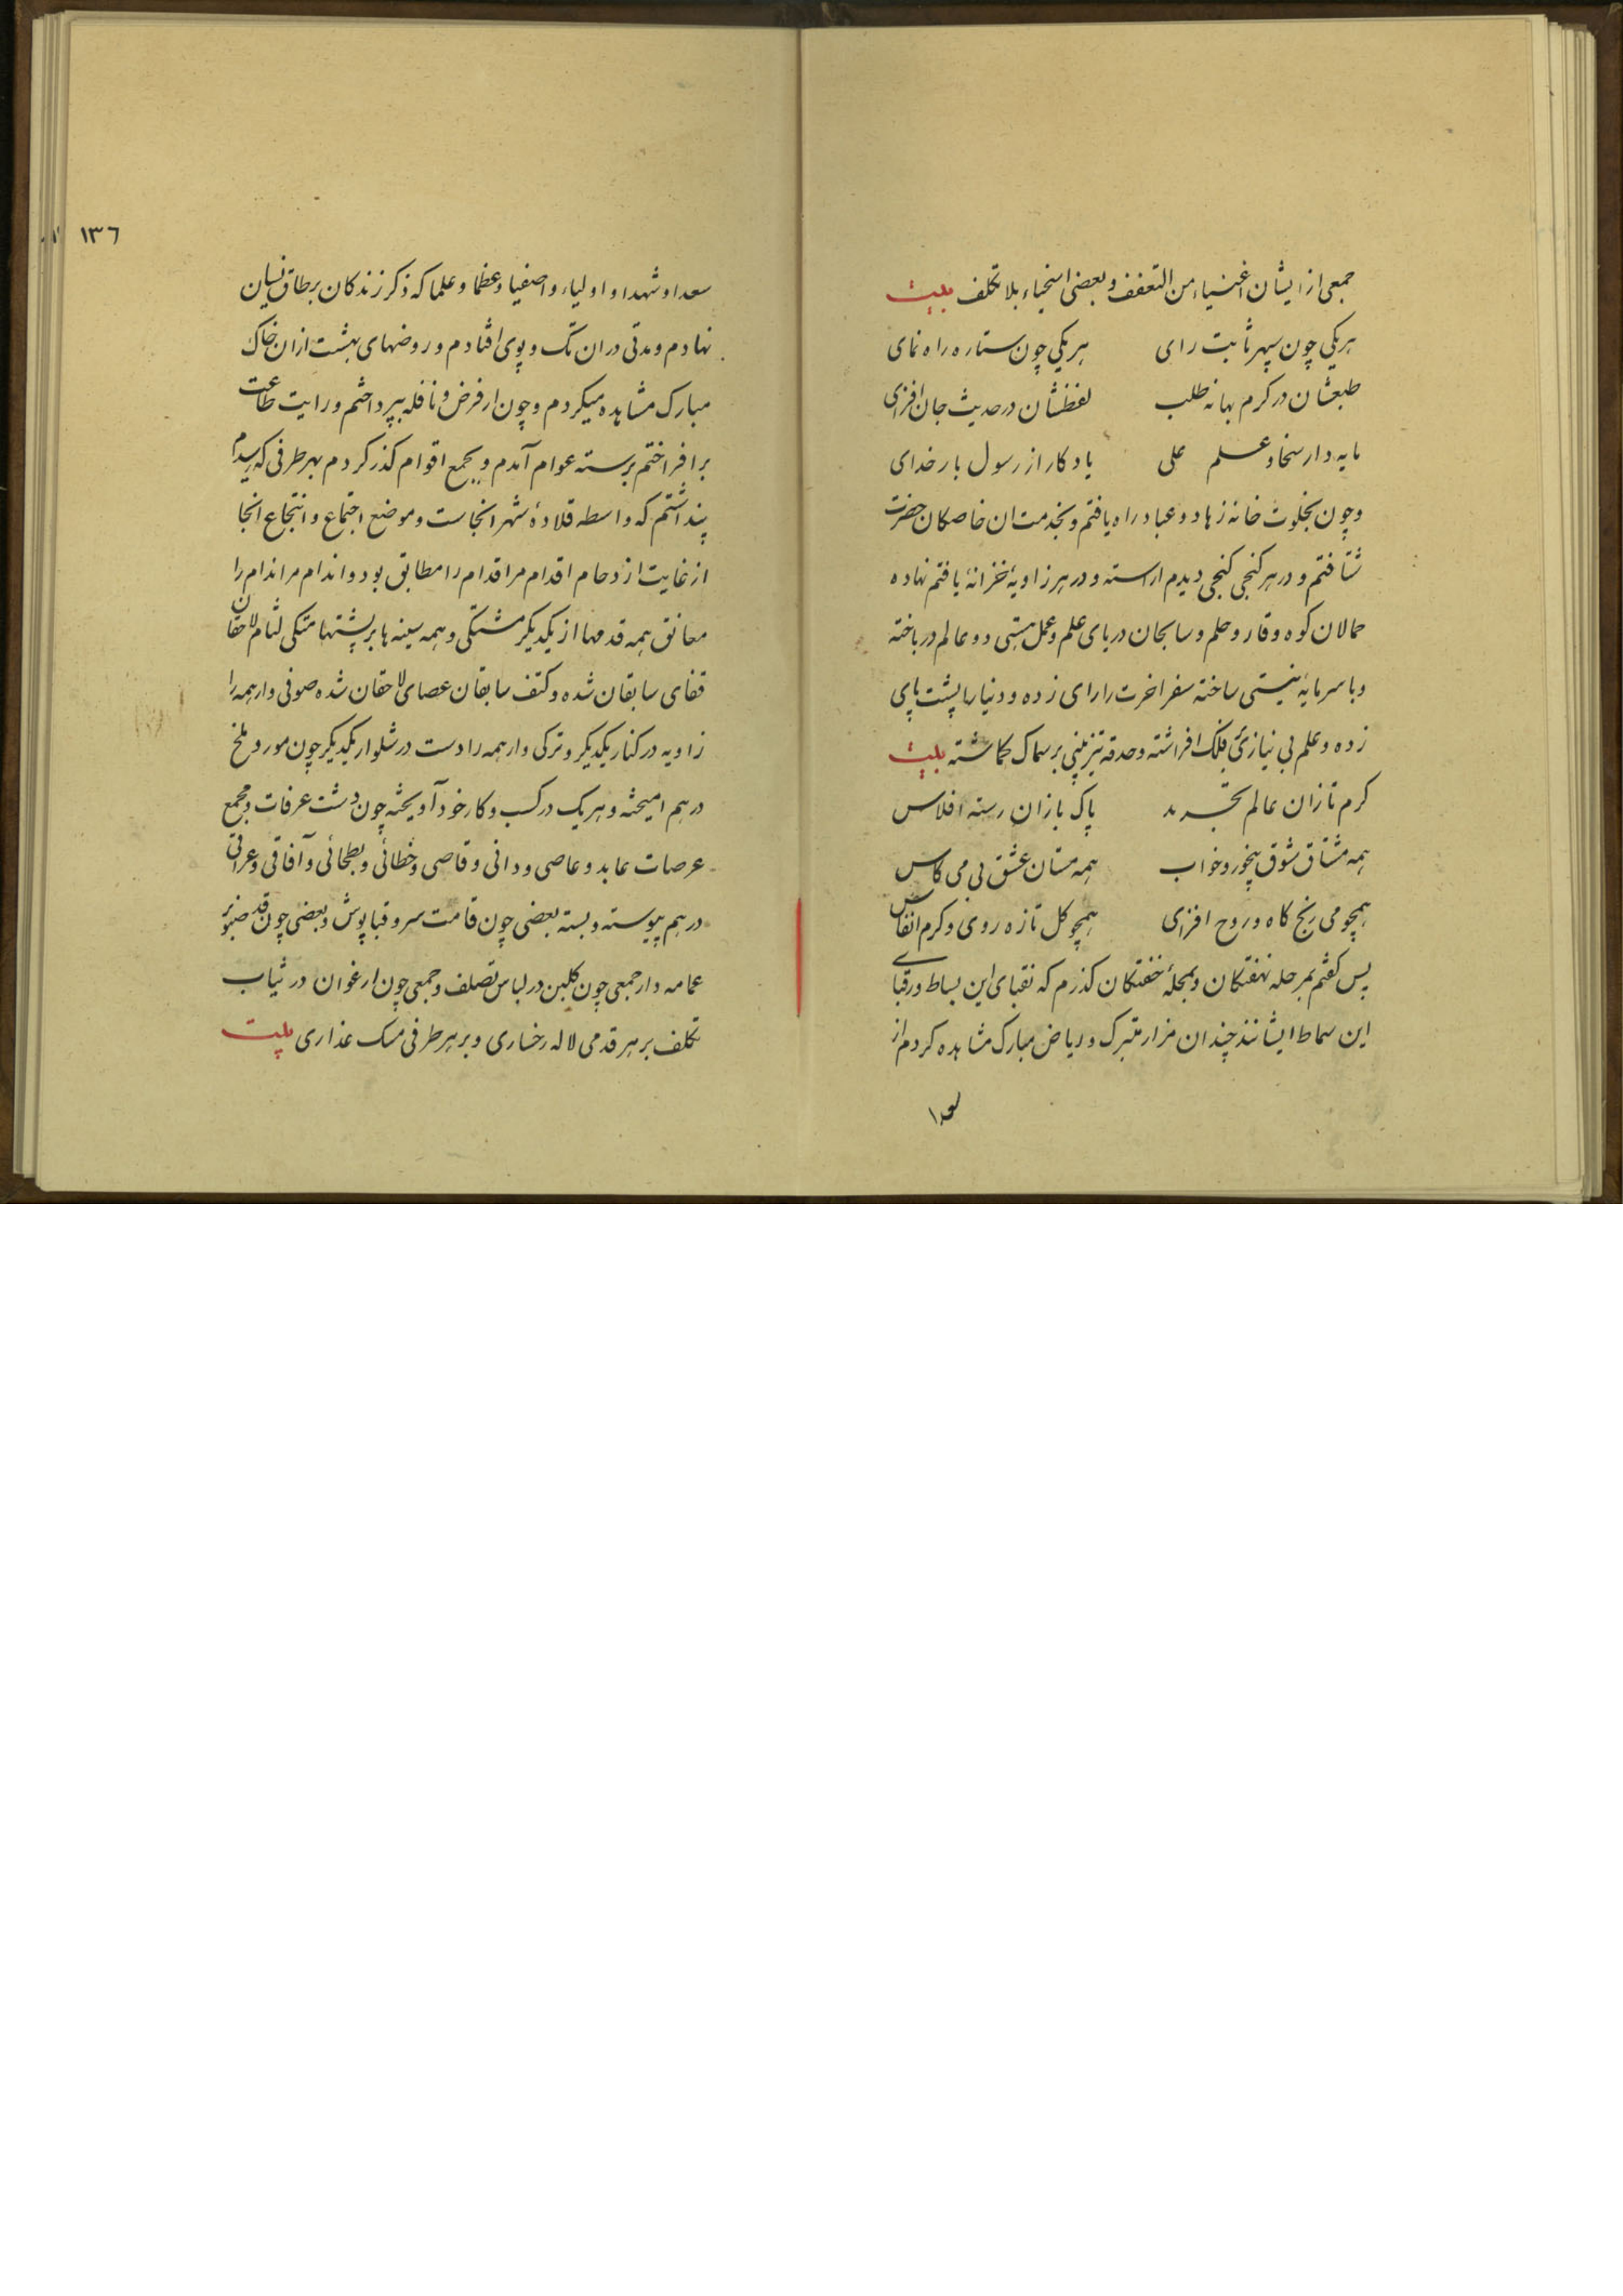 جمعی از ایشان اغنیاء من التعفف و بعضی اسخیاء بلا تکلف بیت
هریکی چون سپهر ثابت رای هریکی چون ستاره راه نمای
طبعشان در کرم بهانه طلب لفظشان در حدیث جان افزای
مایه دار سخا و علم علی یادکار از رسول بار خدای
و چون بخلوت خانه زهاد و عباد راه یافتم و بخدمت ان خاصکان حضرت
شتافتم و در هر کنجی کنجی دیدم اراسته و در هر زاویهٔ خزانهٔ یافتم نهاده
حمالان کوه وقار و حلم و سابحان دریای علم و عمل هستی دو عالم در باخته
و با سرمایهٔ نیستی ساخته سفر اخرت را رای زده و دنیا را پشت پای
زده و علم بی نیازی بفلک افراشته و حدقه تیز بینی بر سماک کماشته بیت
کرم تازان عالم تجرید پاک بازان رسته افلاس
همه مشتاق شوق بیخور و خواب همه مستان عشق بی می کاس
همچو می رنج کاه و روح افزای همچو کل تازه روی و کرم انفاس
پس کفتم بمرحله نهفتکان و بمحلهٔ خفتکان کذرم که نقبای این بساط و رقبای
این سماط ایشانند چندان مزار متبرک و ریاض مبارک مشاهده کردم از
١٣٦
سعدا و شهدا و اولیاء و اصفیا و عظما و علما که ذکر زندکان بر طاق نسیان
نهادم و مدتی در ان تک و پوی افتادم و روضهای بهشت از ان خاک
مبارک مشاهده میکردم و چون از فرض و نافله بپرداختم و رایت طاعت
برافراختم برسته عوام آمدم و بجمع اقوام کذر کردم بهر طرفی که رسیدم
پنداشتم که واسطه قلادهٔ شهر انجاست و موضع اجتماع و انتجاع انجا
از غایت ازدحام اقدام مر اقدام را مطابق بود و اندام مر اندام را
معانق همه قدمها از یکدیکر مشتکی و همه سینه ها بر پشتها متکی لثام لاحقان
قفای سابقان شده و کتف سابقان عصای لاحقان شده صوفی وار همه را
زاویه در کنار یکدیکر و ترکی وار همه را دست در شلوار یکدیکر چون مور و ملخ
در هم امیخته و هر یک در کسب و کار خود آویخته چون دشت عرفات و مجمع
عرصات عابد و عاصی و دانی و قاصی و خطائی و بطحائی و آفاقی و عراقی
در هم پیوسته و بسته بعضی چون قامت سرو قبا پوش و بعضی چون قد صنوبر
عمامه دار جمعی چون کلبن در لباس تصلف و جمعی چون ارغوان در ثیاب
تکلف بر هر قدمی لاله رخساری و بر هر طرفی مسک عذاری بیت